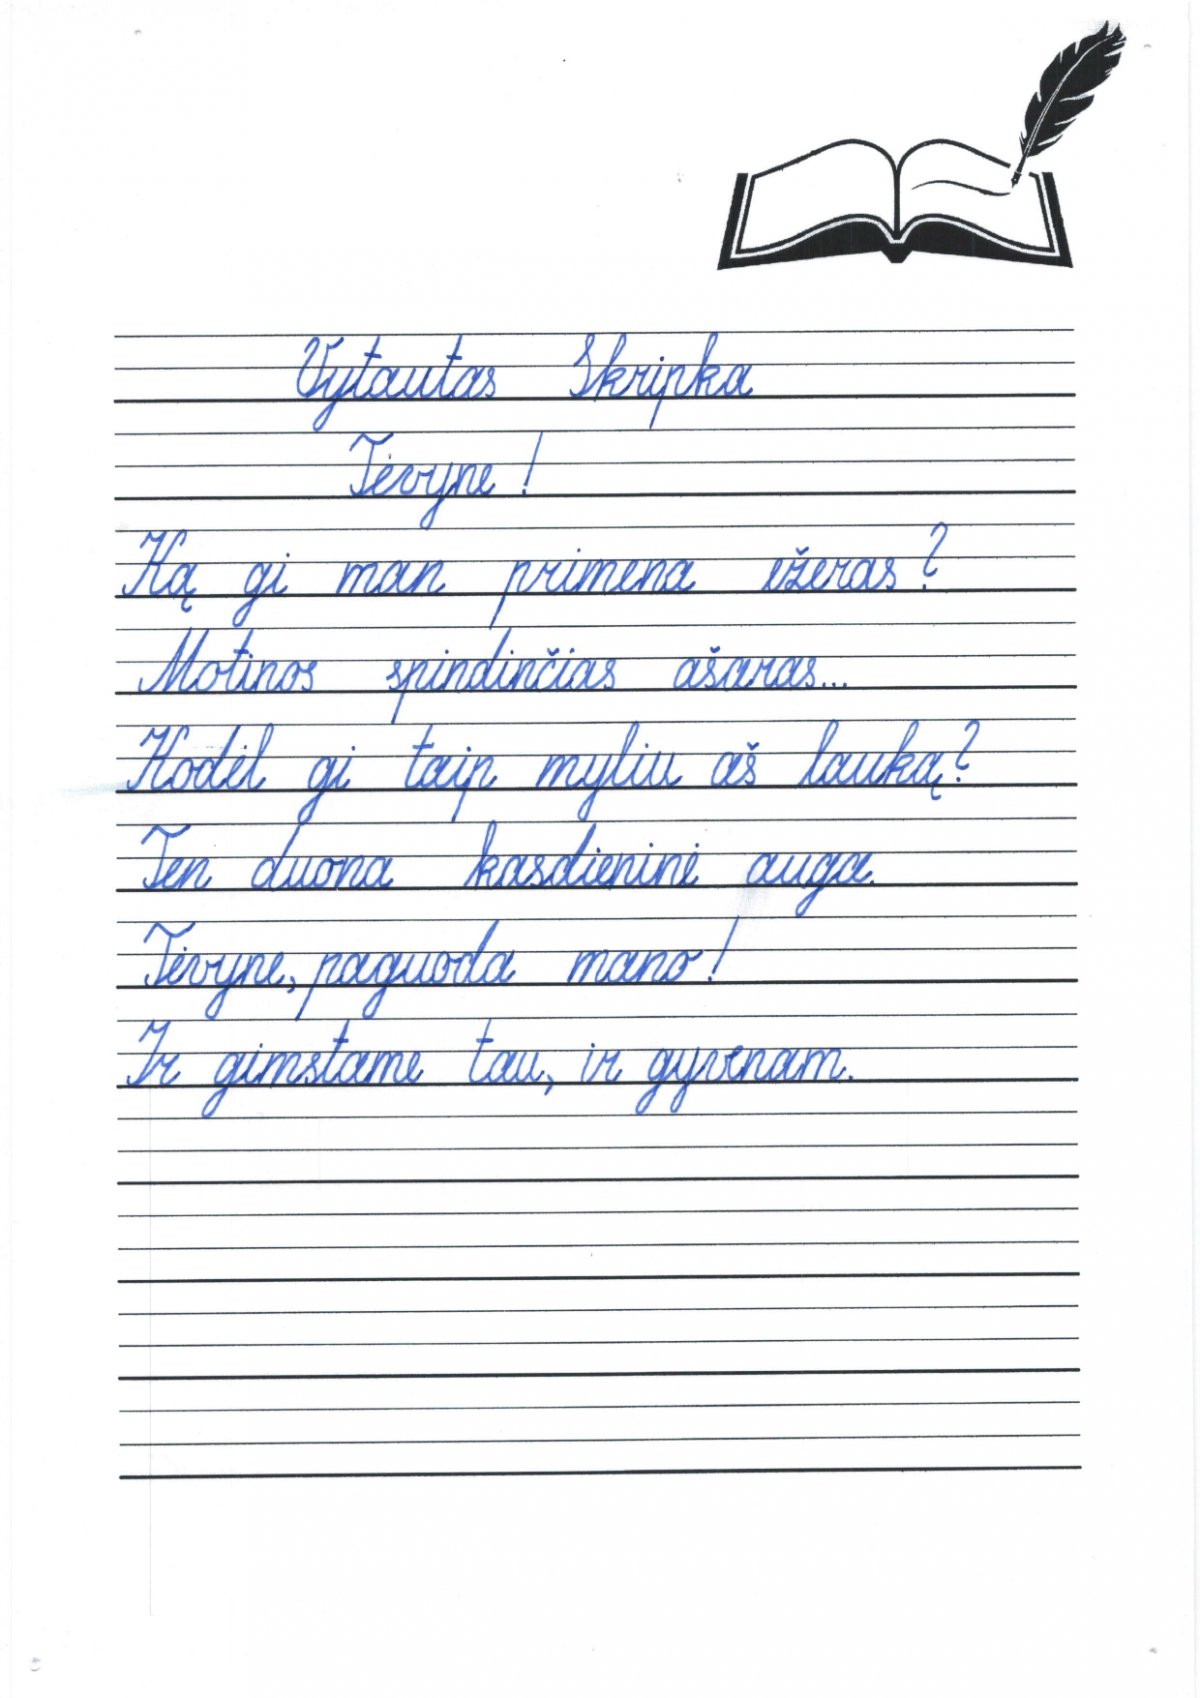 Vytautas Skripka
Tėvyne!
Ką gi man primena ežeras?
Motinos spindinčias ašaras...
Kodėl gi taip myliu aš lauką?
Ten duona kasdieninė auga.
Tėvyne, paguoda mano!
Ir gimstame tau, ir gyvenam.